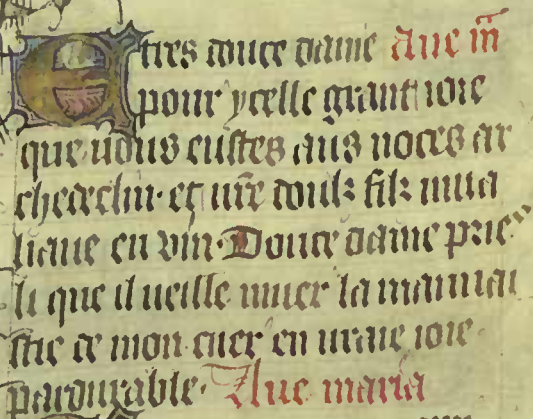 E tres douce dame Aue m̄
pour ycelle grant ioie
que uous eustes aus noces ar
chedeclin. et ur̄e doulz filz mua
liaue en vin. Douce dame pries
li que il ueille muer la mauuai
stie de mon cuer en uraie ioie.
pardurable. Aue maria